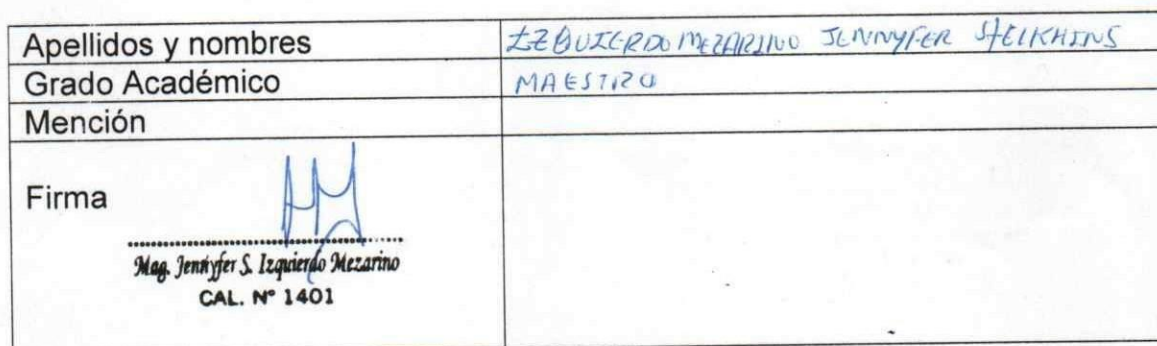 Apellidos y nombres IZQUIERDO MEZARINO JENNYFER STEIKHINS
Grado Académico MAESTRO
Mención
Firma
Mag. Jennyfer S. Izquierdo Mezarino
CAL. N° 1401